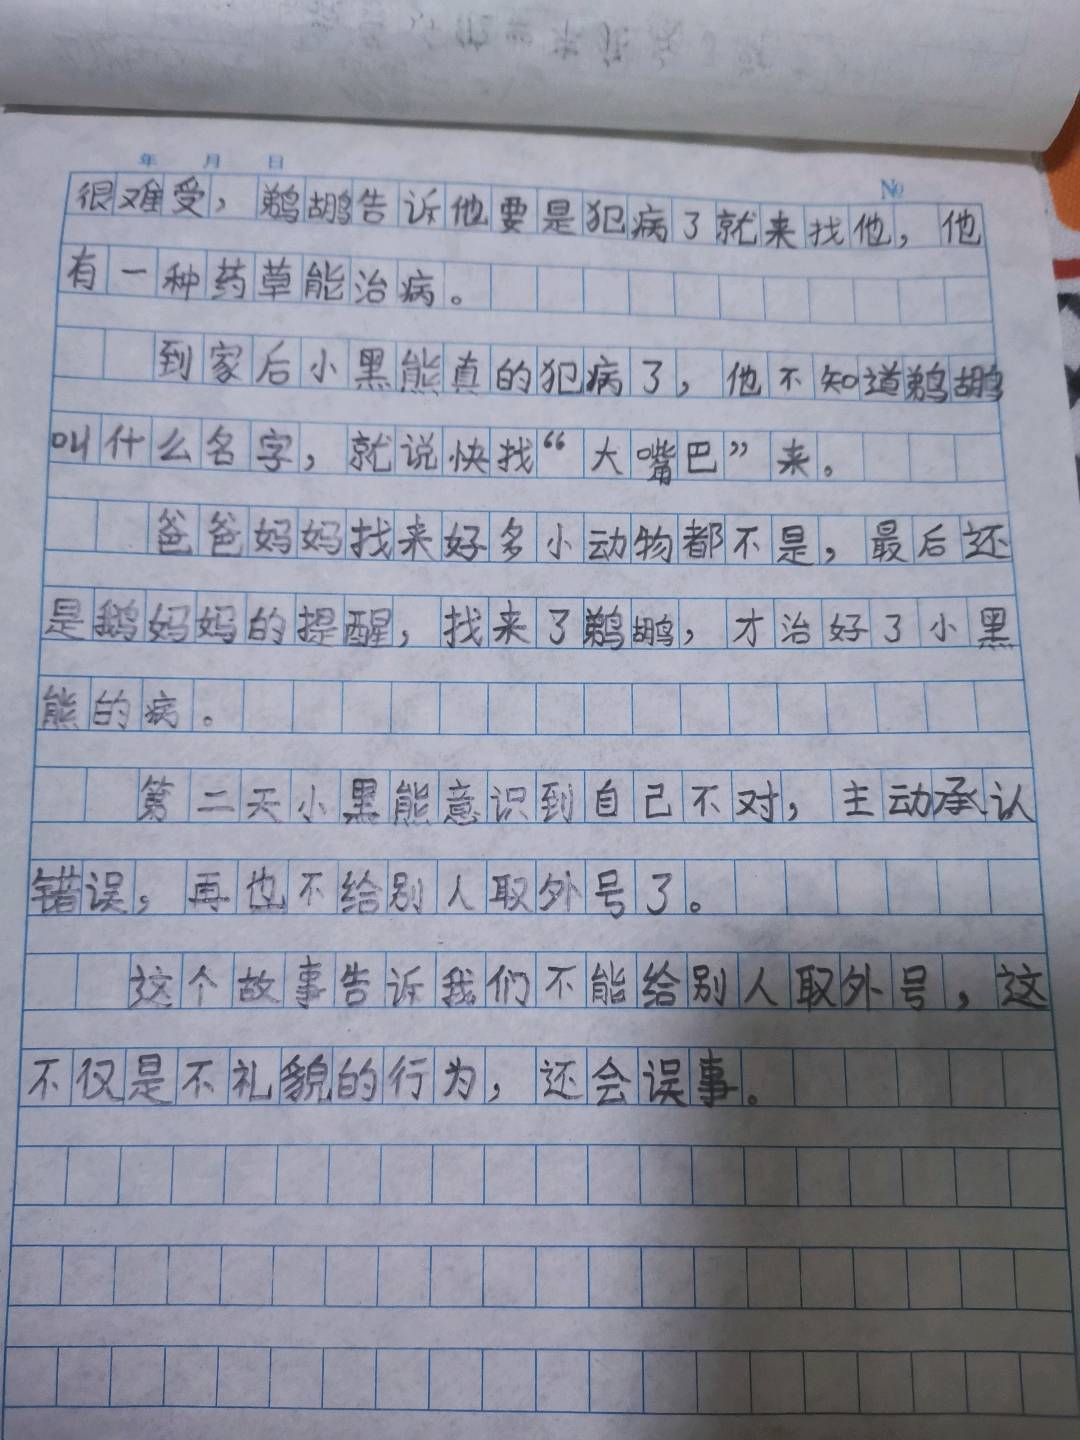 年 月 日
No
很难受，鹈鹕告诉他要是犯病了就来找他，他
有一种药草能治病。
到家后小黑熊真的犯病了，他不知道鹈鹕
叫什么名字，就说快找“大嘴巴”来。
爸爸妈妈找来好多小动物都不是，最后还
是鹅妈妈的提醒，找来了鹈鹕，才治好了小黑
熊的病。
第二天小黑熊意识到自己不对，主动承认
错误，再也不给别人取外号了。
这个故事告诉我们不能给别人取外号，这
不仅是不礼貌的行为，还会误事。